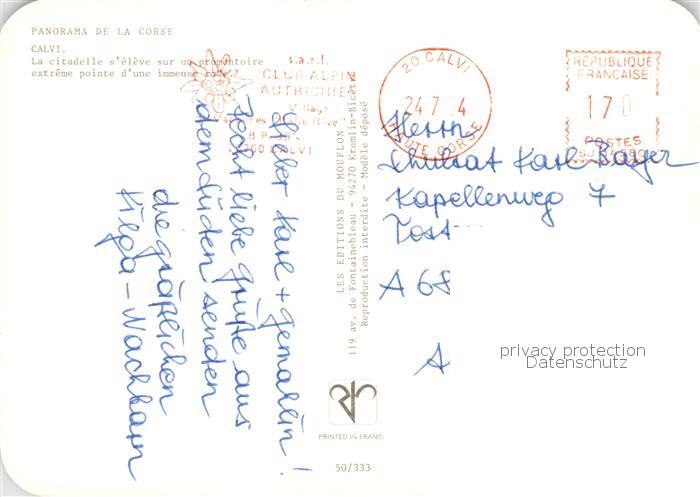 PANORAMA DE LA CORSE
CALVI.
La citadelle s'élève sur un promontoire
extrême pointe d'une immense rade.
s.a.r.l.
CLUB ALPIN
AUTRICHIEN
Village
B.P.
20260 CALVI
20 CALVI
24 7 4
HAUTE CORSE
RÉPUBLIQUE
FRANÇAISE
170
POSTES
Herrn
Schulrat Karl
Kapellenweg 7
Tost
A 68
A
Lieber Karl + Gemahlin!
Recht liebe Grüße aus
dem Süden senden
die
Kilga - Nachbarn
LES EDITIONS DU MOUFLON
119 av. de Fontainebleau - 94270 Kremlin-Bicêtre
Reproduction interdite - Modèle déposé
PRINTED IN FRANCE
50/333
privacy protection
Datenschutz